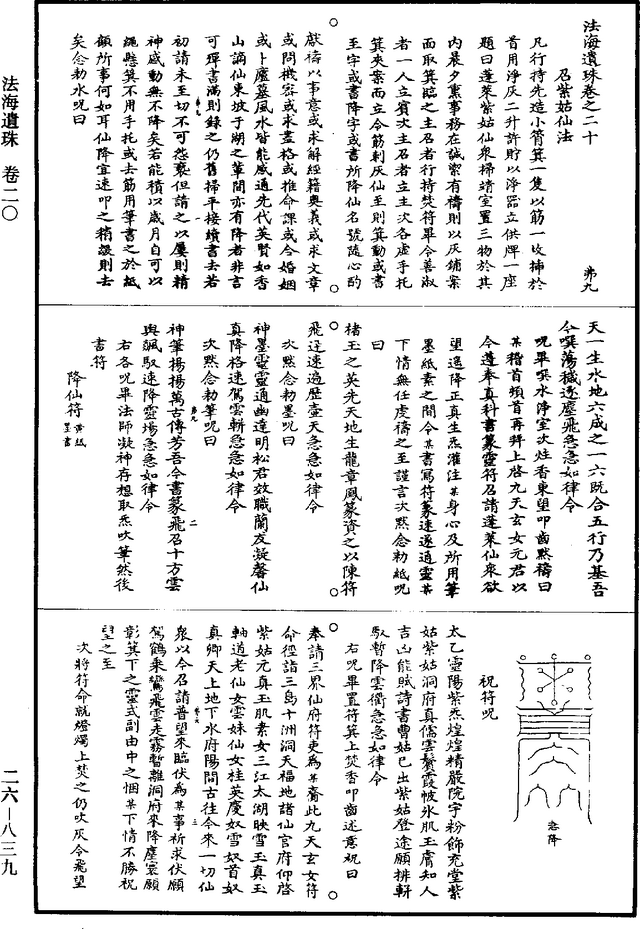 法海遺珠卷之二十
弗九
召紫姑仙法
凡行持先造小筲箕一隻以筋一枚插於
首用淨灰二升許貯以淨器立供牌一座
題曰蓬萊紫姑仙眾掃靖室置三物於其
內晨夕熏事務在誠禦有禱則以灰鋪案
面取箕臨之主召者行持焚符畢令善淑
者一人立賓次主召者立主次各虛手托
箕夾案而立令筋剌灰仙至則箕動或書
至字或書降字或書所降仙名號隨心酌
獻禱以事意或求解經籍奧義或求文章
或問機密或求畫格或推命課或合婚姻
或卜廬墓風水皆能感通先代英賢如香
山謫仙東坡于湖之輩間亦有降者非言
可殫書滿則錄之仍舊掃平接續書去若
初請未至切不可怨褻但請之以屢則精
神感動無不降矣若能積以歲月自可以
繩懸箕不用手托或去筋用筆書之於紙
顧所事何如耳仙降宜速叩之稍緩則去
矣念勑水呪曰
天一生水地六成之一六既合五行乃基吾
今噀蕩穢逐塵飛急急如律令
呪畢噀水淨室次炷香東望叩齒黙禱曰
某稽首頓首再拜上啓九天玄女元君以
今遵奉真科書篆靈符召請蓬萊仙眾欲
望遙降正真生炁灌注某身心及所用筆
墨紙素之間令某書寫符篆速遂通靈某
下情無任虔禱之至謹言次黙念勑紙呪
曰
楮玉之英先天地生龍章鳳篆資之以陳符
飛迳速遍歷壺天急急如律令
次黙念勑墨呪曰
神墨靈靈通幽達明松君效職蘭友凝馨仙
真降格速駕雲軿急急如律令
次黙念勑筆呪曰
神筆揚揚萬古傳芳吾今書篆飛召十方雲
輿飆馭速降靈場急急如律令
右各呪畢法師凝神存想取炁吹筆然後
書符
降仙符 黃紙墨書
急降
祝符呪
太乙靈陽紫炁煌煌精嚴院宇粉飾充堂紫
姑紫姑洞府真儒雲鬟霞帔氷肌玉膚知人
吉凶能賦詩書曹姑已出紫姑登途願排軒
馭暫降雲衢急急如律令
右呪畢置符箕上焚香叩齒述意祝曰
奉請三界仙府符吏為某齎此九天玄女符
命徑詣三島十洲洞天福地諸仙官府仰啓
紫姑元真玉肌素女三江太湖映雪玉真玉
軸道老仙女雲妹仙女桂英慶奴雪奴首奴
真卿天上地下水府陽間古往今來一切仙
眾以今召請普望來臨伏為某事祈求伏願
駕鶴乘鸞飛雲走霧暫離洞府來降塵寰願
彰箕下之靈式副由中之悃某下情不勝祝
望之至
次將符命就燈燭上焚之仍吹灰令飛望
法海遺珠 卷二〇
二六-八三九